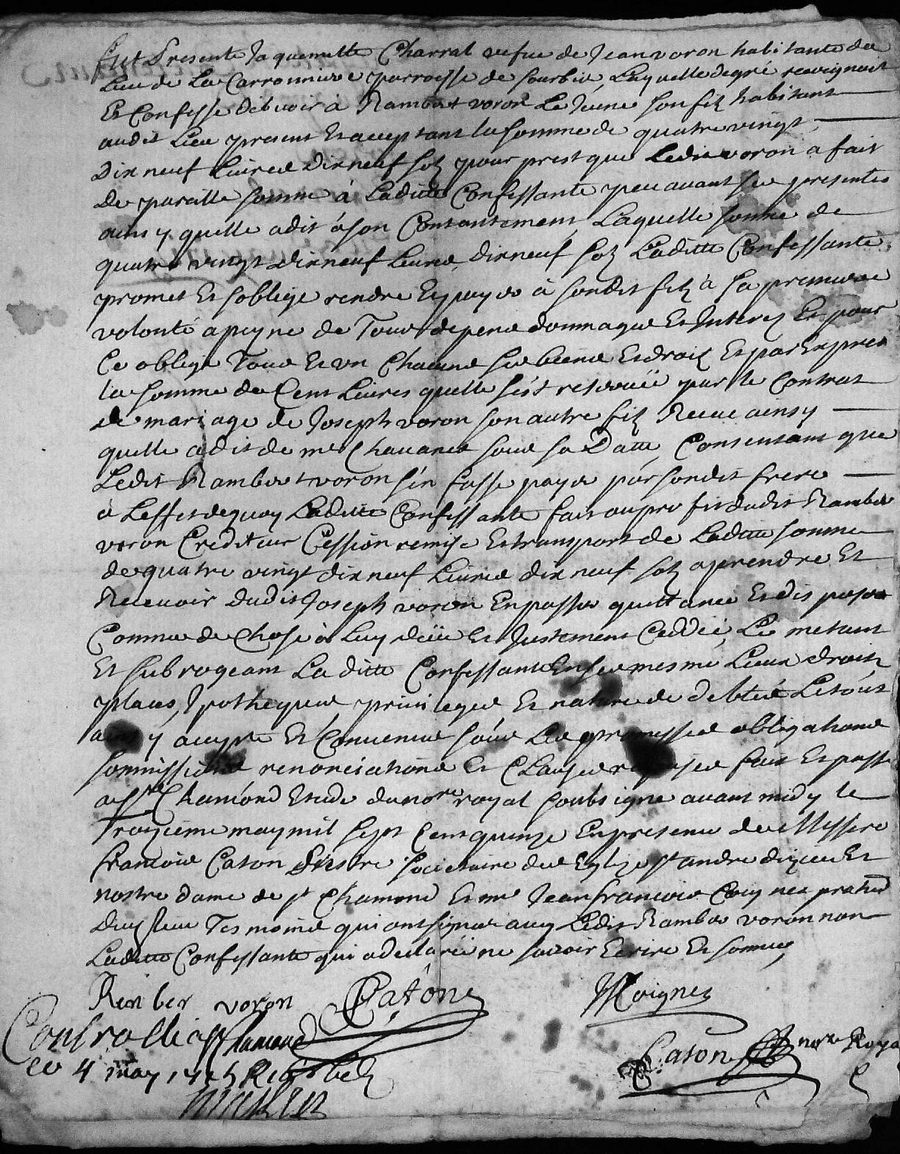 Fut Presente Jaquemette Charral vefue de Jean voron habitante du
lieu de La Carronniere parroisse de Sourbie, Laquelle de gré
Et Confesse debvoir à Rambert voron Le Jeune son filz habitant
audit Lieu present Et acceptant la somme de quatre vingt
dix neuf Liures dix neuf solz pour prest que Ledit voron a fait
de pareille somme à Laditte Confessante peu avant ses presentes
ainsy quelle a dit à son Contantement, Laquelle somme de
quatre vingt dix neuf Liures dix neuf solz Laditte Confessante
promet Et soblige rendre Et payer à sondit filz à sa premiere
volonté a peyne de Tous depens dommages Et Interez Et pour
Ce oblige Tous Et un Chacuns ses biens Et droiz Et par Expres
la somme de Cent Liures quelle sest reservéé par le Contrat
de mariage de Joseph voron son autre filz Receu ainsy
quelle a dit de me Chavanes sous sa Datte, Consentant que
Ledit Rambert voron sen fasse payer par sondit frere
à Leffet dequoy Laditte Confessante fait au profit dudit Rambert
voron Crediteur Cession remise Et transport de Laditte somme
de quatre vingt dix neuf Liures dix neuf solz a prendre Et
Recevoir dudit Joseph voron En passer quittance Et disposer
Comme de Chose à Luy deüe Et Justement Ceddéé, Le metant
Et subrogeant Laditte Confessante En ses mesmes Lieux droitz
places, hypotheques privileges Et nature de debtes Le tout
ainsy accepté Et Convenu sous Les promesses obligations
sommissions renonciations Et Clauses requises fait Et passé
a St Chamond Etude du nore royal soubsigné avant midy le
troyzieme may mil sept Cens quinze En presence de Messire
francois Caton pretre societaire des Eglizes St andre dizieu Et
nostre dame de St Chamond Et me Jean francois Coignet praticien
dudit lieu Tesmoins qui ont signé avec Ledit Rambert voron non
Laditte Confessante qui a declaréé ne savoir Ecrire Et sommée
Rember voron Caton Coignet
Controllé a St Chamond Caton nore Royal
le 4 may 1715